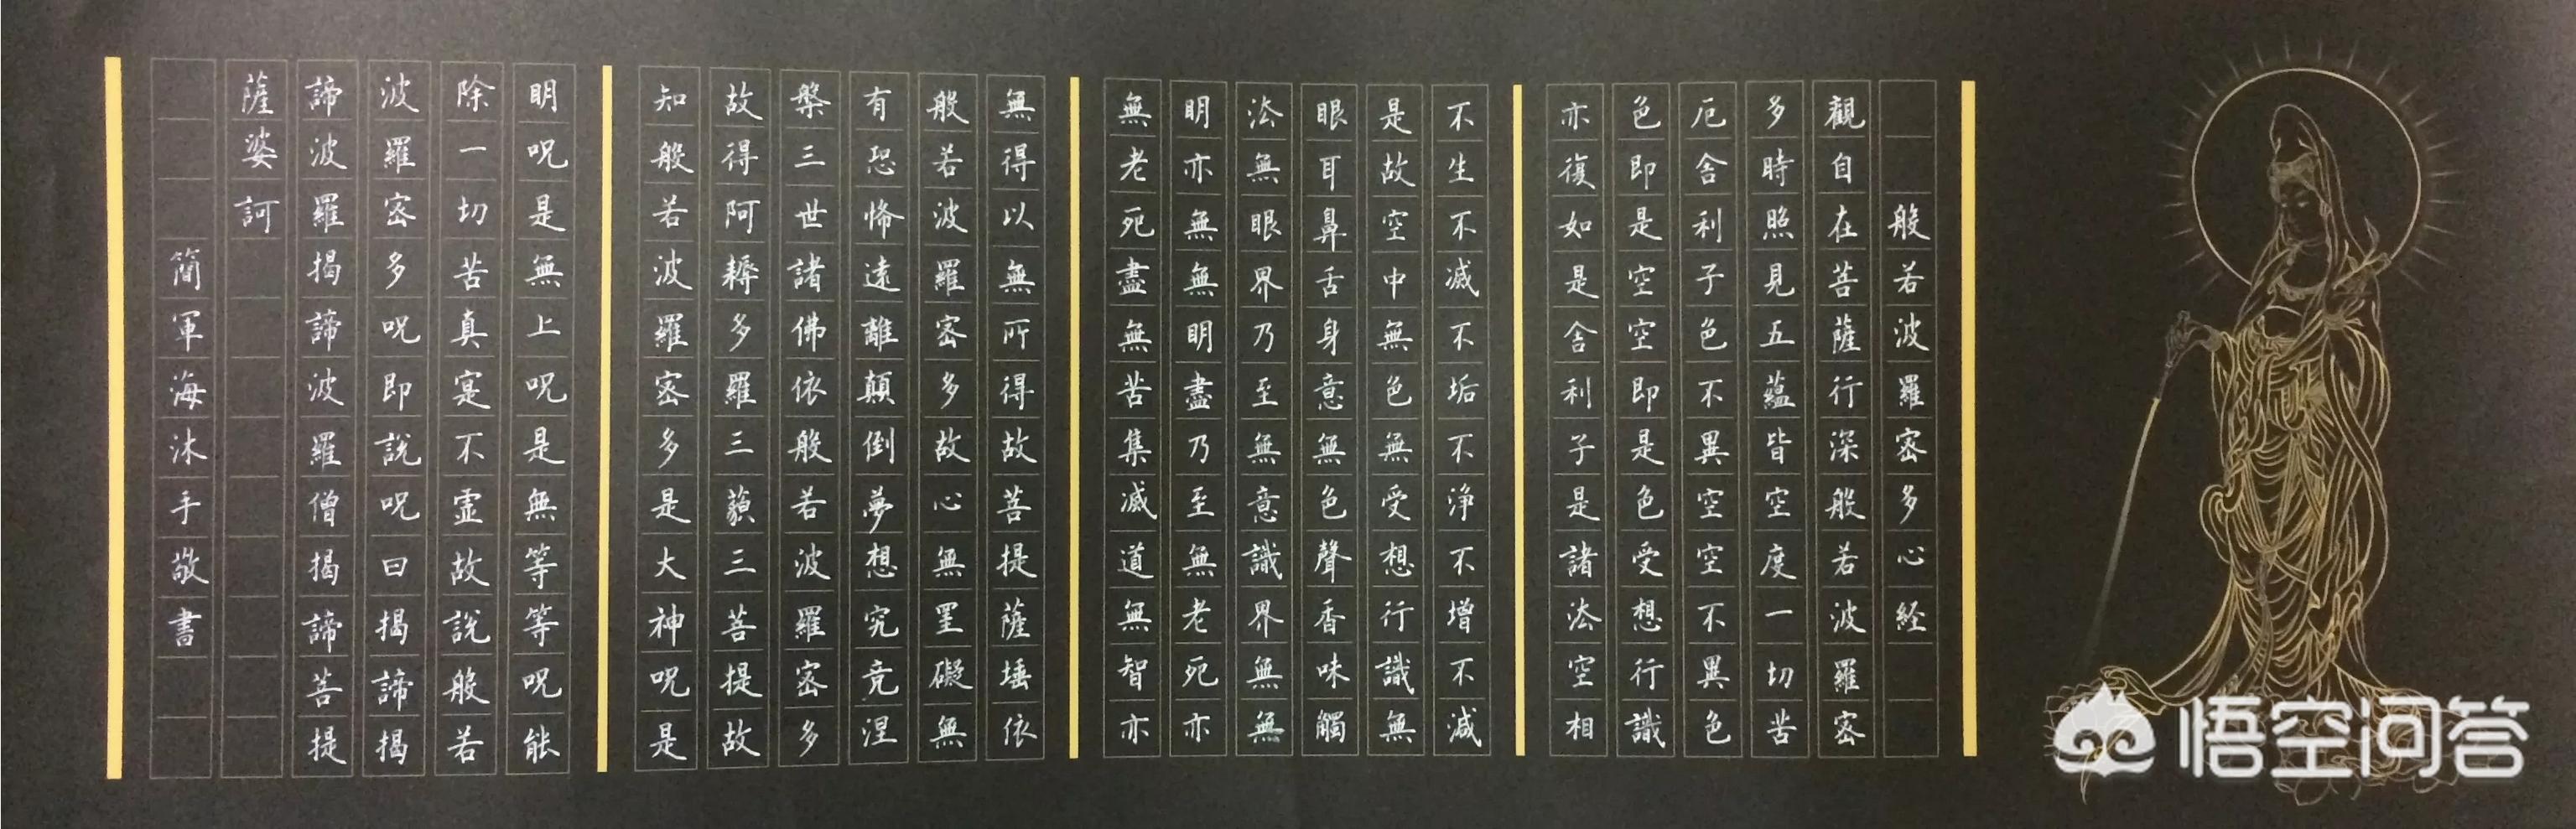 般若波羅密多心経
觀自在菩薩行深般若波羅密
多時照見五蘊皆空度一切苦
厄舍利子色不異空空不異色
色即是空空即是色受想行識
亦復如是舍利子是諸法空相
不生不滅不垢不淨不增不減
是故空中無色無受想行識無
眼耳鼻舌身意無色聲香味觸
法無眼界乃至無意識界無無
明亦無無明盡乃至無老死亦
無老死盡無苦集滅道無智亦
無得以無所得故菩提薩埵依
般若波羅密多故心無罣礙無
有恐怖遠離顛倒夢想究竟涅
槃三世諸佛依般若波羅密多
故得阿耨多羅三藐三菩提故
知般若波羅密多是大神呪是
明呪是無上呪是無等等呪能
除一切苦真寔不虛故説般若
波羅密多呪即説呪曰揭諦揭
諦波羅揭諦波羅僧揭諦菩提
薩婆訶
簡軍海沐手敬書
悟空问答